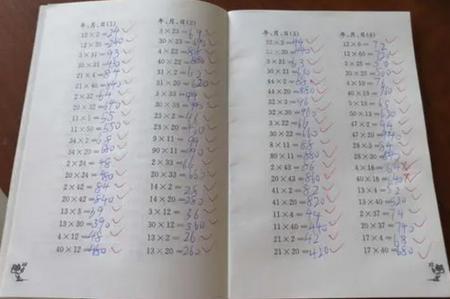 年、月、日(1)
12×2=24
12×20=240
3×31=93
21×4=84
21×40=840
2×32=64
20×32=640
11×5=55
11×50=550
34×2=68
34×20=680
2×24=48
20×24=480
2×42=84
20×42=840
13×3=39
13×30=390
4×12=48
40×12=480
年、月、日(2)
3×23=69
30×23=690
4×22=88
40×22=880
31×2=62
31×20=620
3×33=99
30×33=990
23×2=46
23×20=460
9×11=99
90×11=990
2×33=66
20×33=660
14×2=28
14×20=280
3×12=36
30×12=360
13×2=26
13×20=260
年、月、日(3)
22×2=44
22×20=440
3×21=63
30×21=630
44×2=88
44×20=880
32×3=96
32×30=960
22×30=660
8×11=88
80×11=880
20×43=860
41×2=82
41×20=820
11×4=44
11×40=440
21×2=42
21×20=420
年、月、日(4)
12×6=72
12×60=720
5×13=65
50×13=650
47×20=940
28×30=840
13×4=52
13×40=520
2×37=74
20×37=740
17×4=68
17×40=680